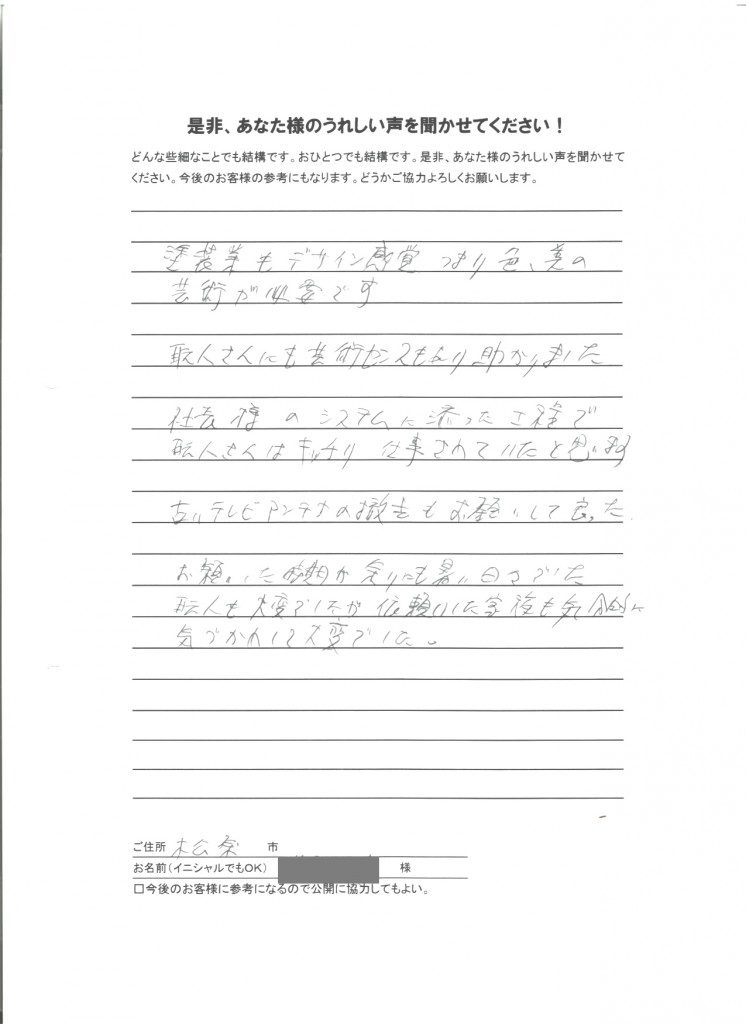 是非、あなた様のうれしい声を聞かせてください！
どんな些細なことでも結構です。おひとつでも結構です。是非、あなた様のうれしい声を聞かせて
ください。今後のお客様の参考にもなります。どうかご協力よろしくお願いします。
塗装業もデザイン感覚つまり色、美の
芸術が必要です
職人さんにも芸術センスもあり助かりました
社長様のシステムに添った工程で
職人さんはキッチリ仕事されていたと思います
古いテレビアンテナの撤去もお願いして良った
お願いした時期が余りにも暑い日々でした
職人も大変でしたが依頼した家族も気分的に
気づかれして大変でした。
ご住所 松原 市
お名前（イニシャルでもOK） 様
□今後のお客様に参考になるので公開に協力してもよい。